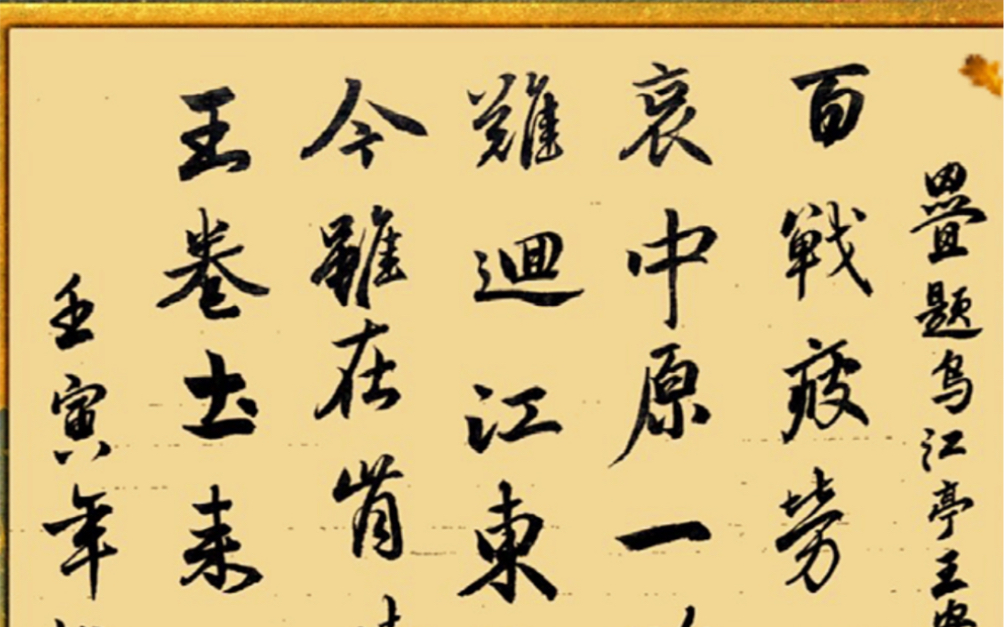 疊题烏江亭王安
百戰疲勞
哀中原一
難迴江東
今雖在肯
王卷土来
壬寅年